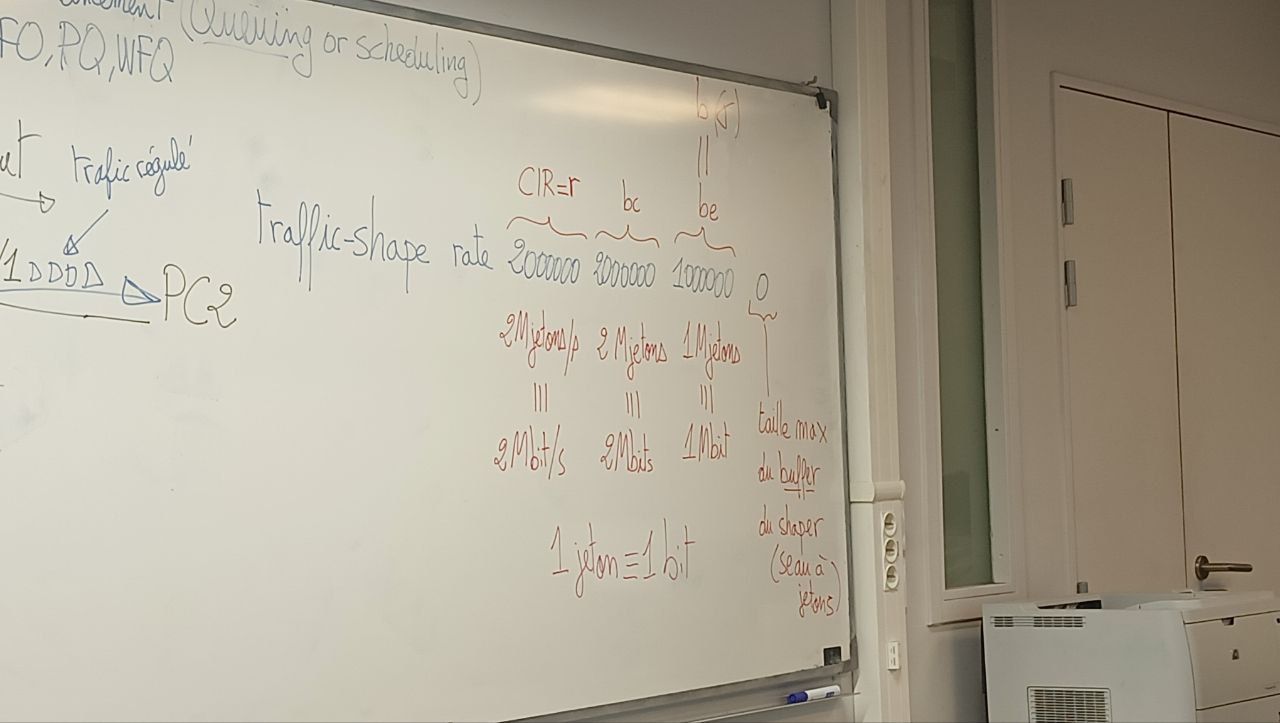 (Queuing or scheduling)
FO, PQ, WFQ
trafic régulé
PC2
b(σ)
||
CIR=r bc be
traffic-shape rate 2000000 2000000 1000000 0
2Mjetons/s 2 Mjetons 1Mjetons
||| ||| |||
2Mbit/s 2Mbits 1Mbit
taille max
du buffer
du shaper
(seau à
jetons)
1 jeton ≡ 1 bit